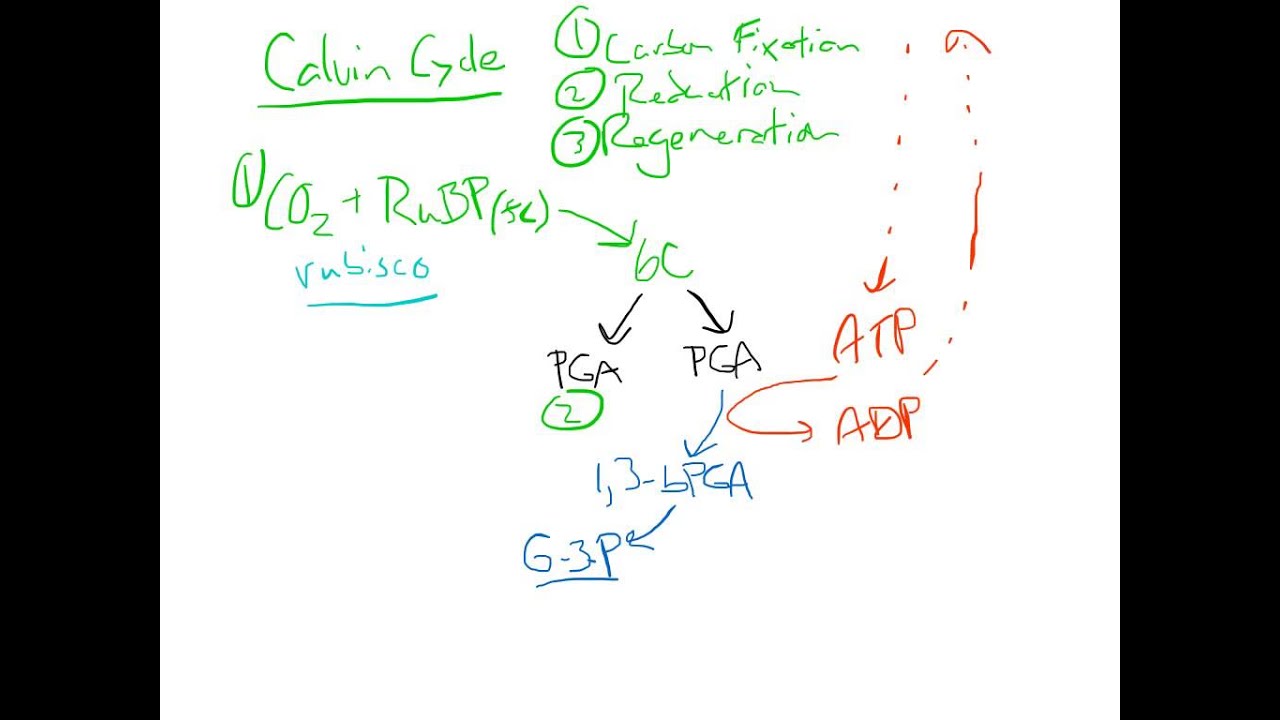 Calvin Cycle
① Carbon Fixation
② Reduction
③ Regeneration
① CO₂ + RuBP (5C)
rubisco
6C
PGA PGA
②
ATP
ADP
1,3-bPGA
G-3-P